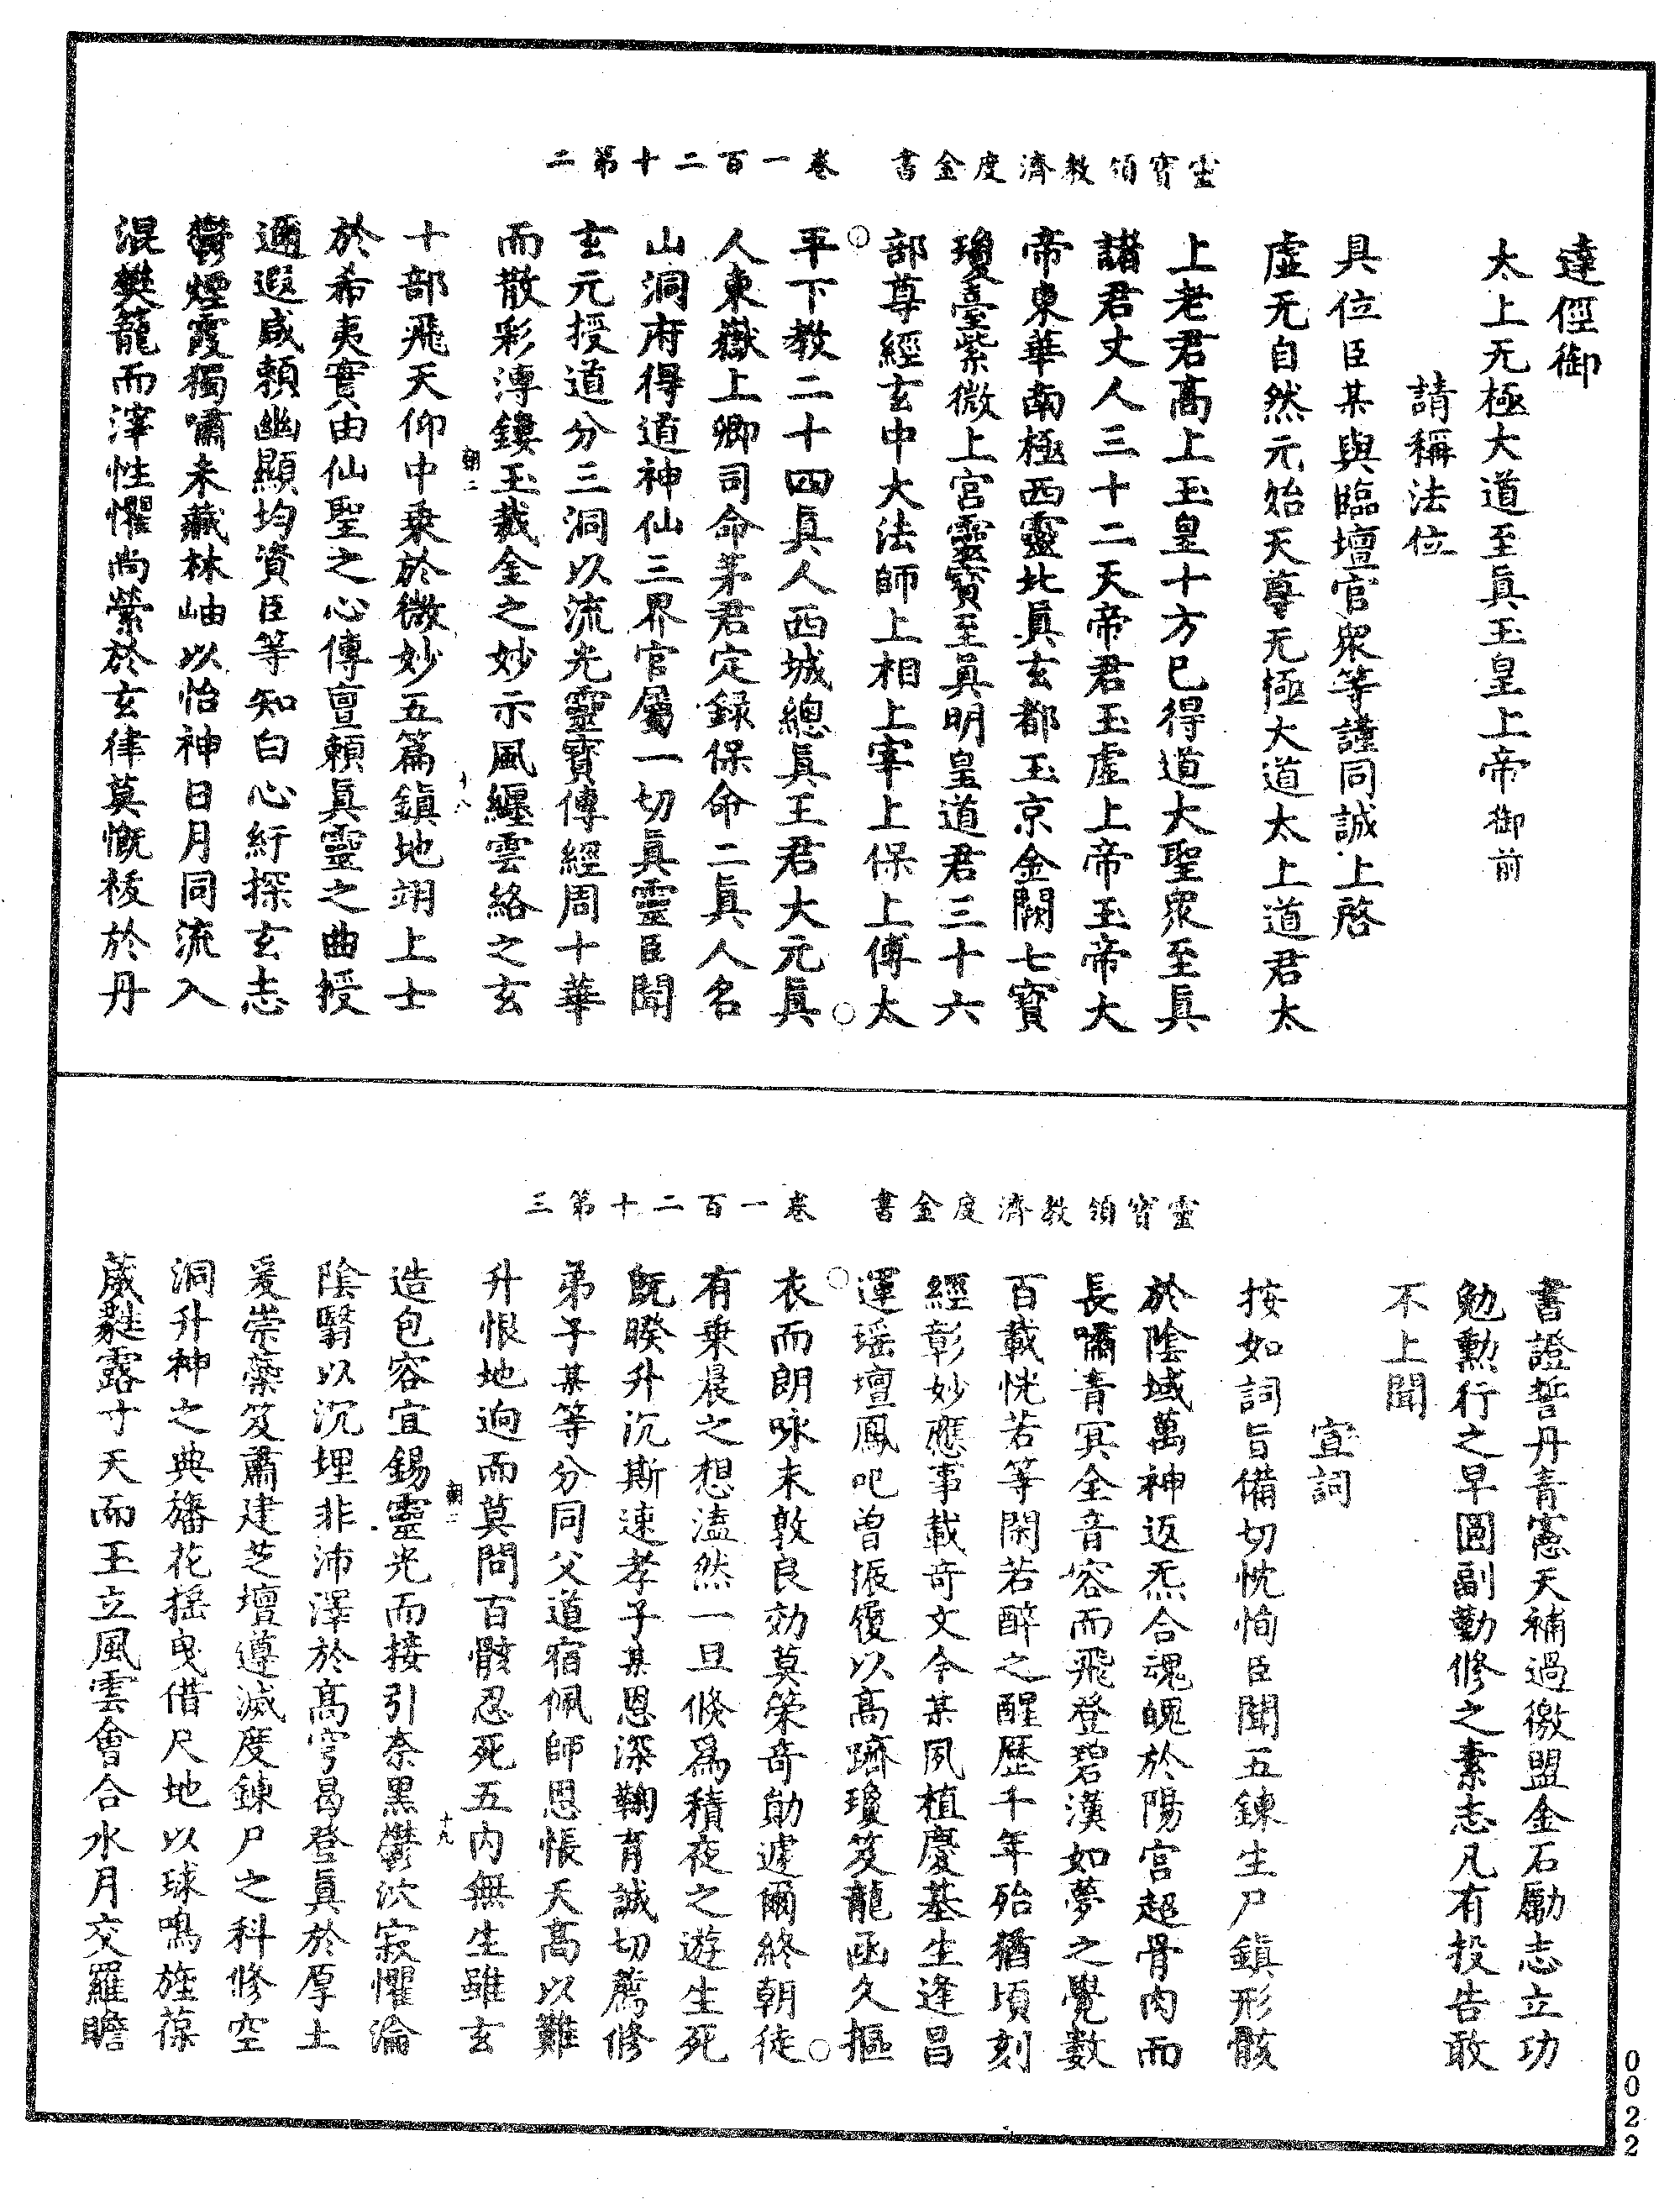 靈寶領教濟度金書　卷一百二十第二
達徑御
太上无極大道至眞玉皇上帝御前
請稱法位
具位臣某與臨壇官衆等謹同誠上啓
虛无自然元始天尊无極大道太上道君太
上老君高上玉皇十方已得道大聖衆至眞
諸君丈人三十二天帝君玉虛上帝玉帝大
帝東華南極西靈北眞玄都玉京金闕七寶
瓊臺紫微上宮靈寶至眞明皇道君三十六
部尊經玄中大法師上相上宰上保上傅太
平下教二十四眞人西城總眞王君大元眞
人東嶽上卿司命茅君定録保命二眞人名
山洞府得道神仙三界官屬一切眞靈臣聞
玄元授道分三洞以流光靈寶傳經周十華
而散彩漙鏤玉裁金之妙示風纏雲絡之玄
十部飛天仰中乗於微妙五篇鎮地翊上士
朝二
十八
於希夷實由仙聖之心傳亶頼眞靈之曲授
邇遐咸頼幽顯均資臣等知白心紆探玄志
鬱煙霞獨嘯未藏林岫以怡神日月同流入
混樊籠而滓性懼尚縈於玄律莫慨祓於丹
靈寶領教濟度金書　卷一百二十第三
書證誓丹青憲天補過徼盟金石勵志立功
勉勲行之早圓副勤修之素志凡有投告敢
不上聞
宣詞
按如詞旨備切忱恂臣聞五錬生尸鎮形骸
於陰域萬神返炁合魂魄於陽宮超骨肉而
長嘯青冥全音容而飛登碧漢如夢之覺數
百載恍若等閑若醉之醒歷千年殆猶頃刻
經彰妙應事載奇文今某夙植慶基生逢昌
運瑶壇鳳吧曾振履以高躋瓊笈龍函久摳
衣而朗咏未敦良効莫策奇勛遽爾終朝徒
有乗晨之想溘然一旦倏爲積夜之遊生死
旣暌升沉斯速孝子某恩深鞠育誠切薦修
弟子某等分同父道宿佩師恩悵天高以難
升恨地逈而莫問百骸忍死五内無生雖玄
朝二
十九
造包容宜錫靈光而接引奈黒鬱㳄寂懼淪
陰翳以沉埋非沛澤於高穹曷登眞於厚土
爰崇蘂笈肅建芝壇遵滅度錬尸之科修空
洞升神之典旛花揺曳借尺地以球鳴旌葆
葳蕤露寸天而玉立風雲會合水月交羅瞻
0022